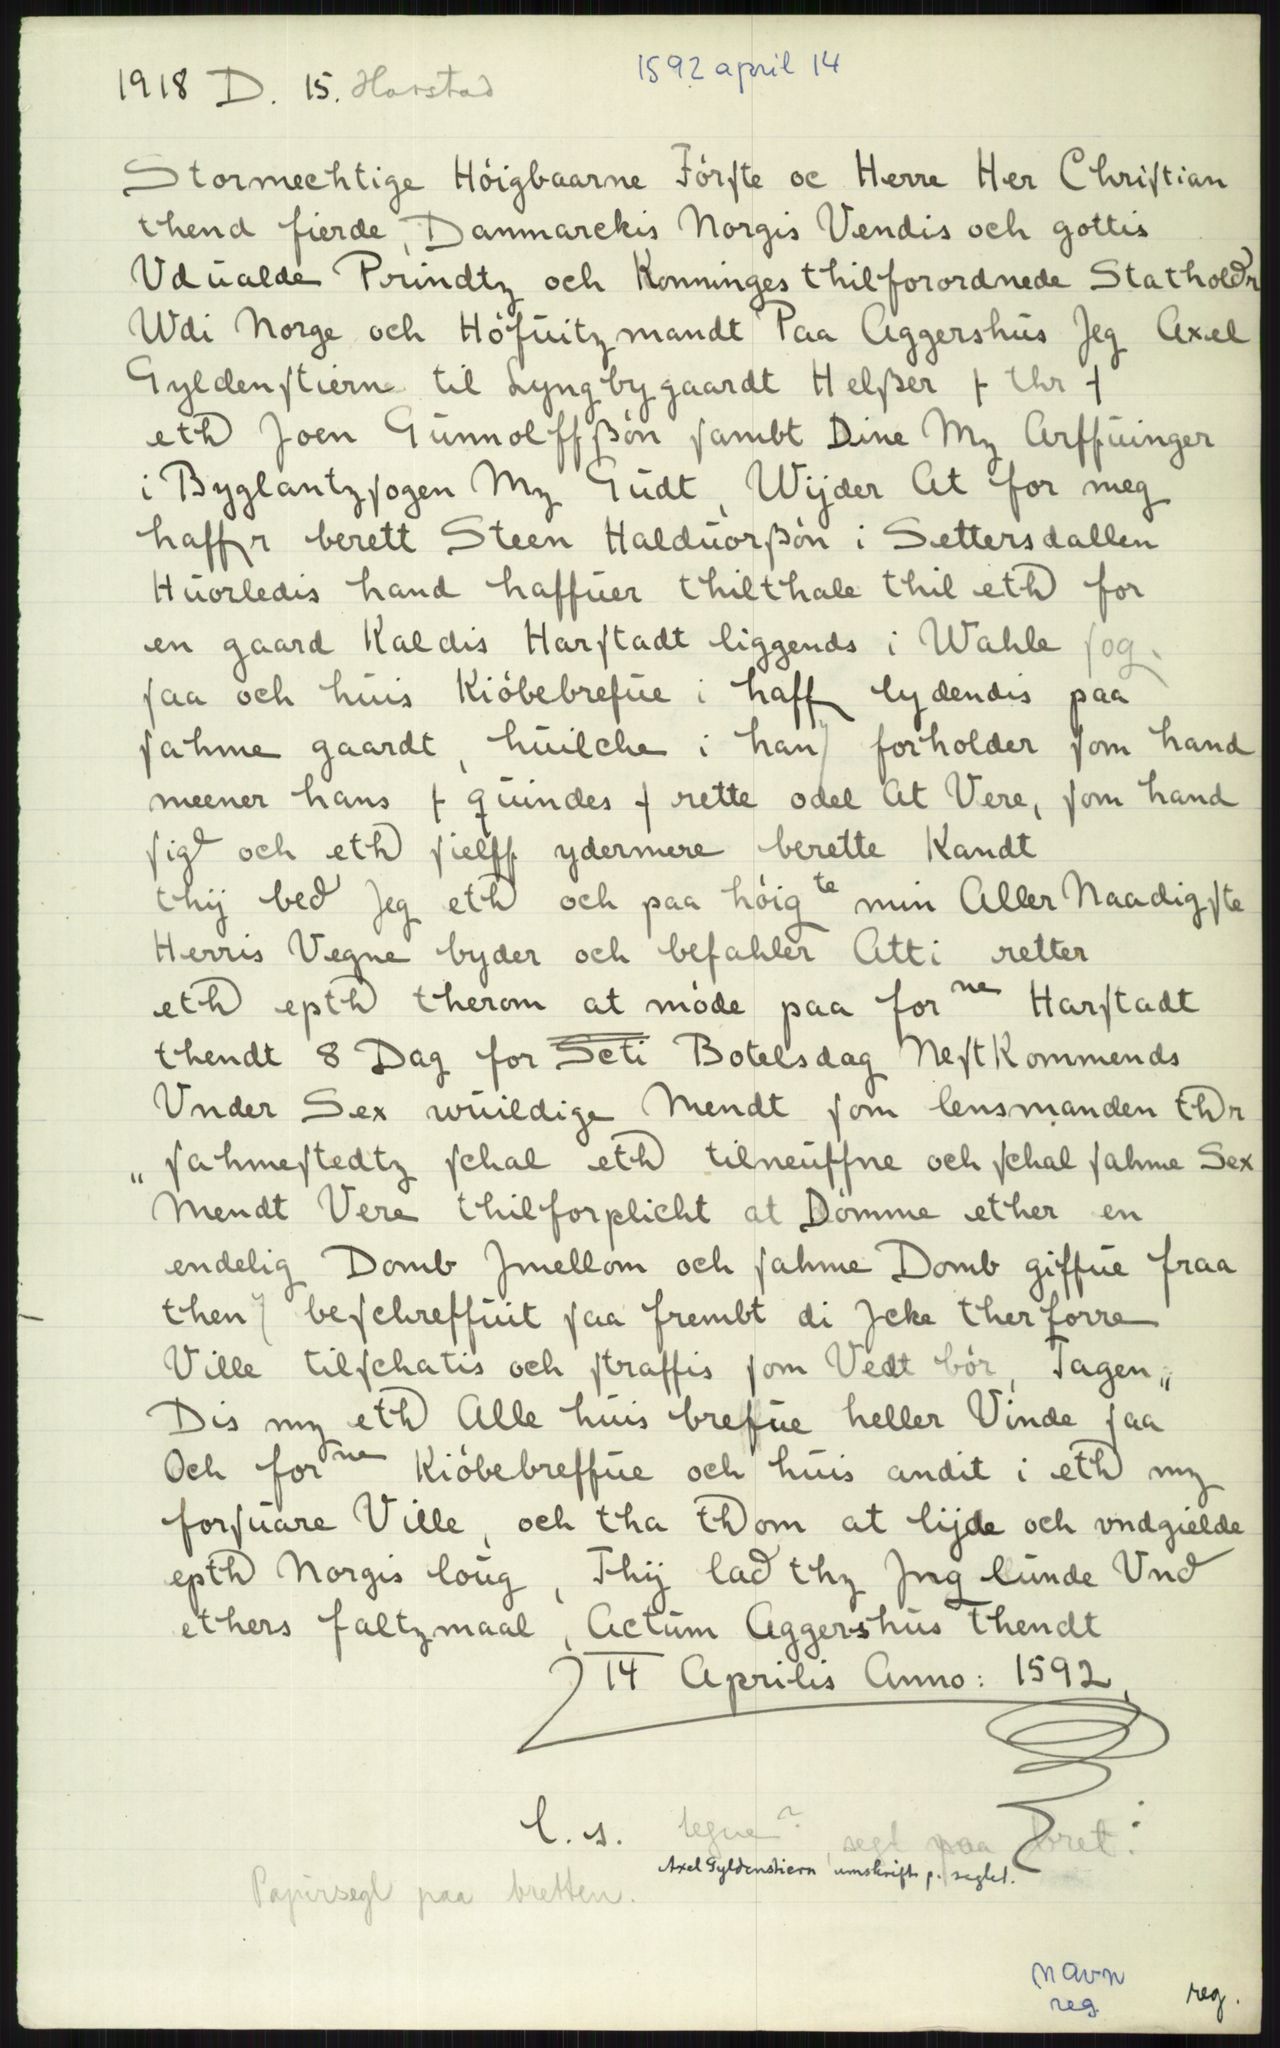 1592 april 14
1918 D. 15. Harstad
Stormechtige Höigbaarne Förſte oc Herre Her Chriſtian
thend fierde, Danmarckis Norgis Vendis och gottis
Vdualde Prindtz och Konninges thilforordnede Statholdr
Wdi Norge och Höfuitzmandt Paa Aggershus Jeg Axel
Gyldenſtiern til Lyngbygaardt Helßer ⟊ thr ⟊
eth Joen Gunnolffßön ſambt Dine My Arffuinger
i Byglantzſogen My Gudt, Wijder At for meg
haffr berett Steen Halduorßön i Settersdallen
Huorledis hand haffuer thilthale thil eth for
en gaard Kaldis Harſtadt liggends i Wahle ſog.
ſaa och huis Kiöbebrefue i haff lydendis paa
ſahme gaardt, huilche i han forholder ſom hand
meener hans ⟊ quindes ⟊ rette odel At Vere, ſom hand
ſigd och eth ſielff ydermere berette Kandt
thij bed Jeg eth och paa höig te min Aller Naadigſte
Herris Vegne byder och befahler Atti retter
eth epth therom at möde paa for ne Harſtadt
thendt 8 Dag for Scti Botelsdag NeſtKommends
Vnder Sex wuildige Mendt ſom lensmanden thr
„ ſahmeſtedtz ſchal eth tilneuffne och ſchal ſahme Sex
Mendt Vere thilforplicht at Dömme ether en
endelig Domb Jmellom och ſahme Domb giffue fraa
then beſchreffuit ſaa frembt di Jcke therforre
Ville tilſchatis och ſtraffis ſom Vedt bör, Tagen„
Dis my eth Alle huis brefue heller Vinde ſaa
Och for ne Kiöbebreffue och huis andit i eth my
forſuare Ville, och tha thom at lijde och vndgielde
epth Norgis loug, Thij lad thz Jng lunde Vnd
ethers faltzmaal, Actum Aggershus Thendt
14 Aprilis Anno: 1592,
l. s. tegne? segl paa bret.
Axel Gyldenstiern umskrift p. seglet.
Papirsegl paa bretten.
navn
reg
reg.